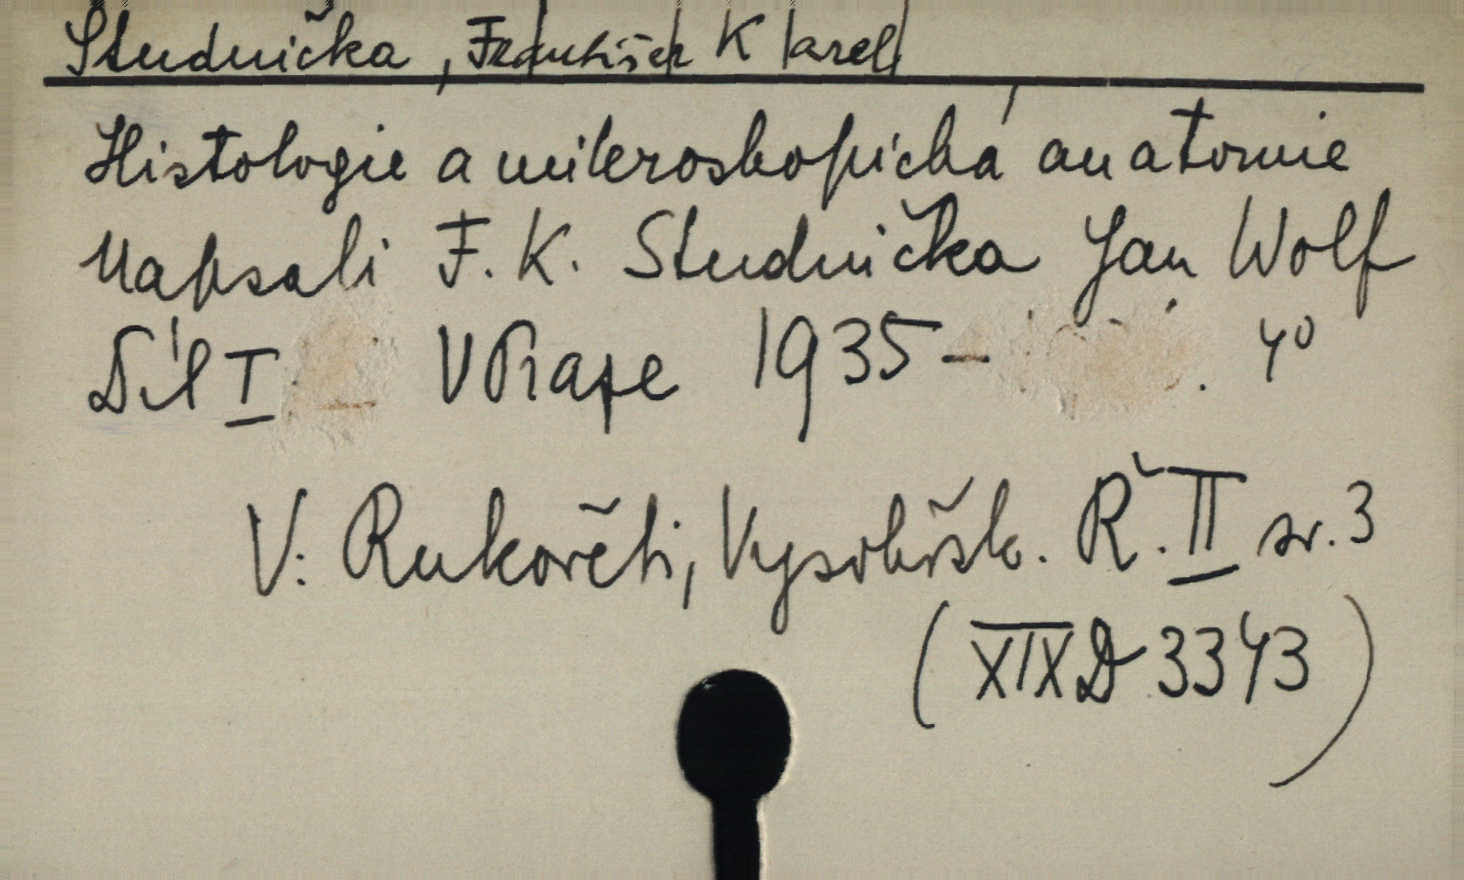 Studnička, František Karel
Histologie a mikroskopická anatomie
Napsali F. K. Studnička Jan Wolf
Díl I V Praze 1935 – . 4°
V: Rukověti, Vysokošk. Ř. II sv. 3
(XIX D 3343)